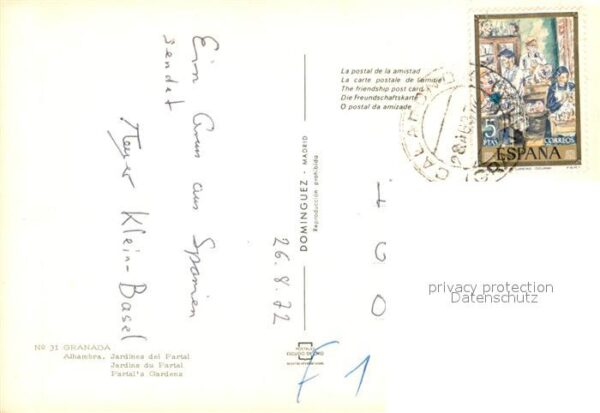 Ein Gruss aus Spanien
sendet
Meyer Klein-Basel
26.8.72
La postal de la amistad
La carte postale de l'amitié
The friendship post card
Die Freundschaftskarte
O postal da amizade
DOMINGUEZ - MADRID
Reproducción prohibida
5
PTAS
CORREOS
ESPAÑA
privacy protection
Datenschutz
Nº 31 GRANADA
Alhambra. Jardines del Partal
Jardins du Partal
Partal's Gardens
POSTALES
ESCUDO DE ORO
F 1